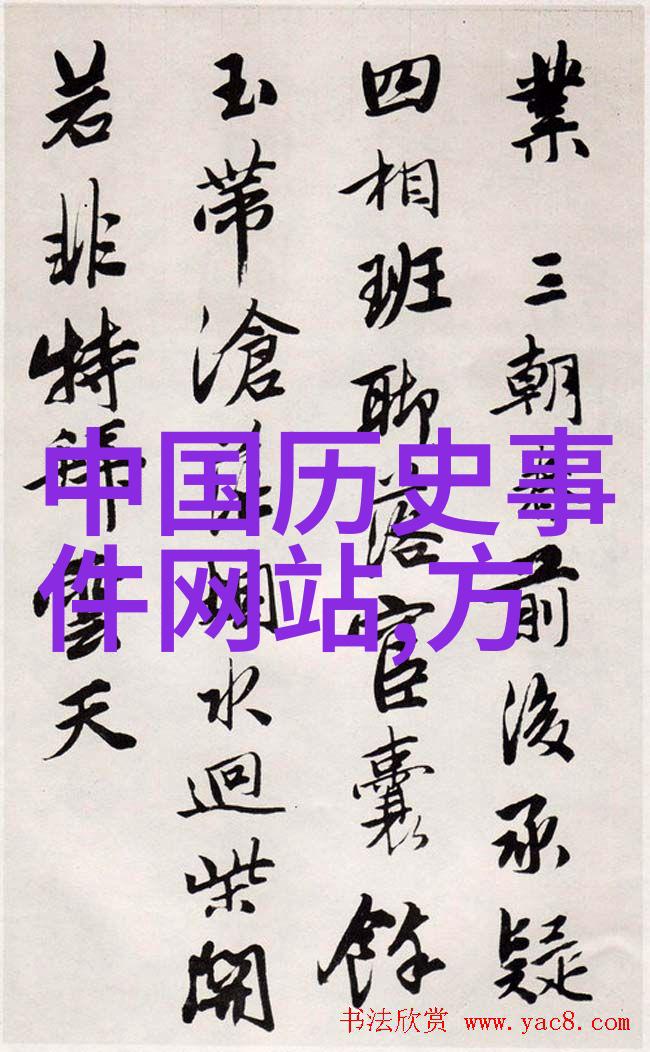 業 三朝前後承疑
四相班聊落官囊餘
玉帶滄水迴柴開
若非特雲天
中国历史事
件网站,方
书法欣赏 www.yac8.com